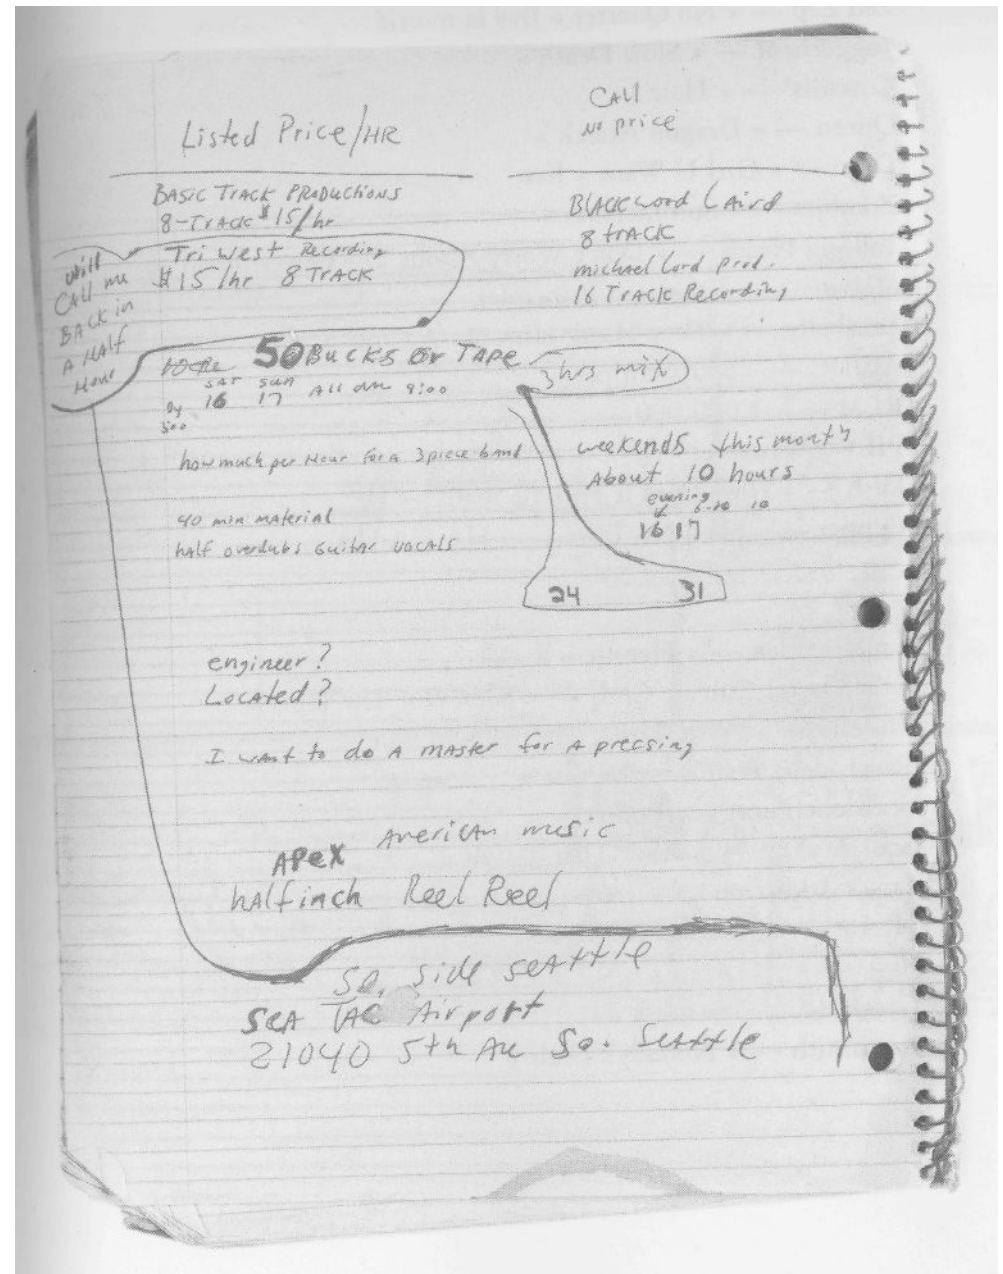 Listed Price/HR
CALL
no price
BASIC TRACK PRODUCTIONS
8-TRACK $15/hr
Tri West Recording
$15/hr 8 TRACK
will
CALL me
BACK in
A HALF
Hour
BLACKwood LAird
8 trACK
michael Lord Prod.
16 TrACK Recording
50 BUCKS for TAPE
3 hrs mix
SAT sun
16 17 All day 9:00
by
500
how much per Hour for a 3 piece band
40 min mAteriAl
hAlf overdubs Guitar vocAls
weekends this month
About 10 hours
evening
16 17
24 31
engineer?
LocAted?
I wAnt to do A mAster for A pressing
AmericAn music
APeX
hAlf inch Reel Reel
So. side seAttle
SeA TAC Airport
21040 5th Av So. SeAttle